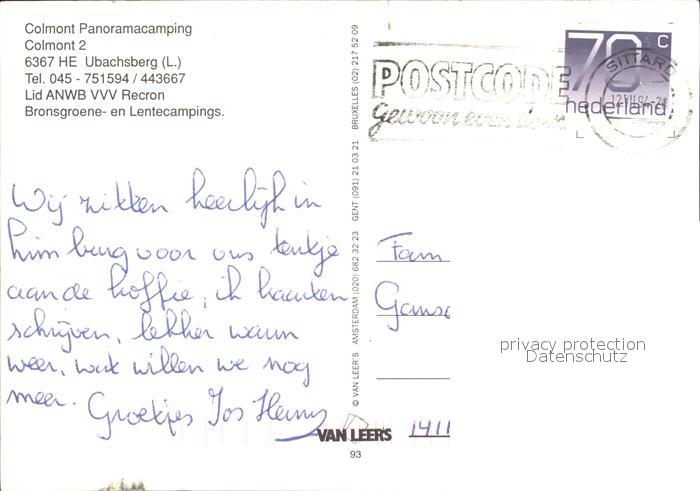 Colmont Panoramacamping
Colmont 2
6367 HE Ubachsberg (L.)
Tel. 045 - 751594 / 443667
Lid ANWB VVV Recron
Bronsgroene- en Lentecampings.
Wij zitten heerlijk in
Limburg voor ons tentje
aan de koffie, ik kaarten
schrijven, lekker warm
weer, wat willen we nog
meer. Groetjes Jos Henny
© VAN LEER'S AMSTERDAM (020) 682 32 23 GENT (091) 21 03 21 BRUXELLES (02) 217 52 09
VAN LEER'S
93
POSTCODE
gewoon even
70 c
nederland
SITTARD
12 VII 94-24
Fam
Gans
1411
privacy protection
Datenschutz